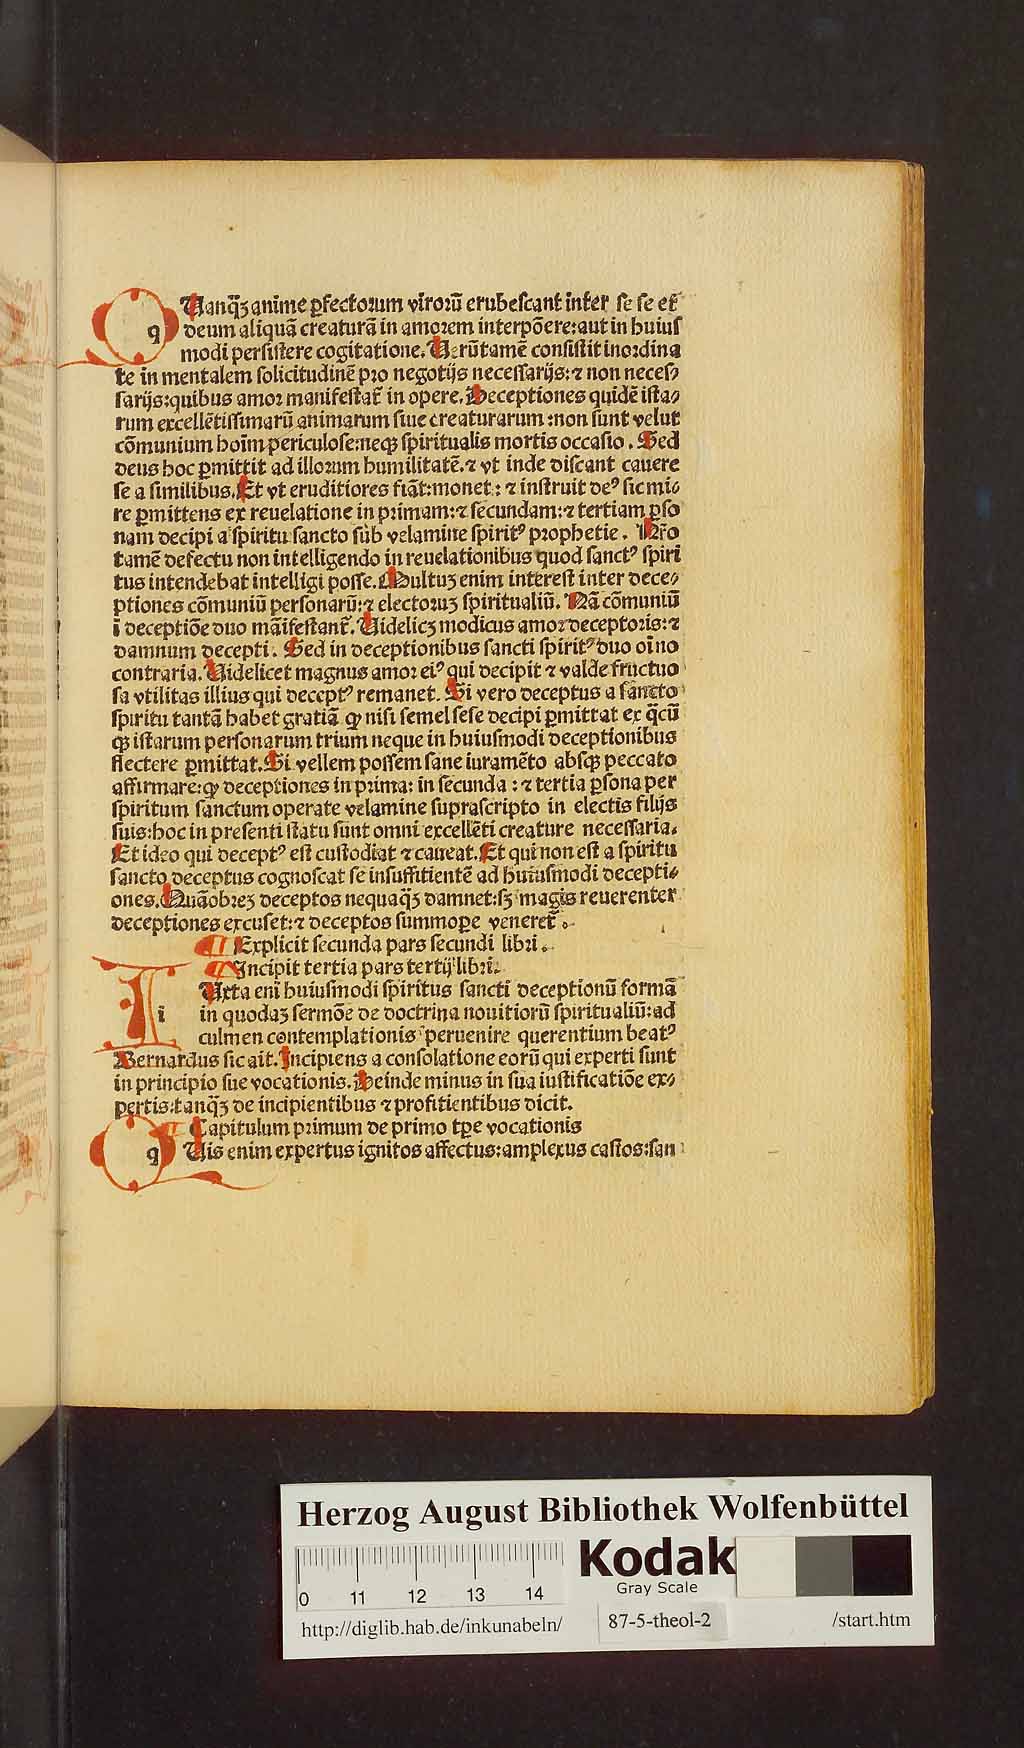 q Uanq̃ꝫ anime ꝑfectorum virorū erubescant inter se se et
deum aliquā creaturā in amorem interpōere: aut in huius
modi persistere cogitatione. Uerūtamē consistit inordina
te in mentalem solicitudinē pro negotijs necessarijs: ⁊ non neces⸗
sarijs: quibus amor manifestat̄ in opere. Deceptiones quidē ista⸗
rum excellētissimarū animarum siue creaturarum: non sunt velut
cōmunium hoīm periculose: neqꝫ spiritualis mortis occasio. Sed
deus hoc ꝑmittit ad illorum humilitatē. ⁊ vt inde discant cauere
se a similibus. Et vt eruditiores fiāt: monet: ⁊ instruit deꝰ sic mi⸗
re ꝑmittens ex reuelatione in primam: ⁊ secundam: ⁊ tertiam ꝑso
nam decipi a spiritu sancto sub velamine spiritꝰ prophetie. Nr̄o
tamē defectu non intelligendo in reuelationibus quod sanctꝰ spiri
tus intendebat intelligi posse. Multuꝫ enim interest inter dece⸗
ptiones cōmuniū personarū: ⁊ electoruꝫ spiritualiū. Nā cōmuniū
ī deceptiōe duo māifestant̄. Uidelicꝫ modicus amor deceptoris: ⁊
damnum decepti. Sed in deceptionibus sancti spiritꝰ duo oīno
contraria. Uidelicet magnus amor eiꝰ qui decipit ⁊ valde fructuo
sa vtilitas illius qui deceptꝰ remanet. Si vero deceptus a sancto
spiritu tantā habet gratiā ꝙ nisi semel sese decipi ꝑmittat ex q̄cū
qꝫ istarum personarum trium neque in huiusmodi deceptionibus
flectere ꝑmittat. Si vellem possem sane iuramēto absqꝫ peccato
affirmare: ꝙ deceptiones in prima: in secunda: ⁊ tertia ꝑsona per
spiritum sanctum operate velamine suprascripto in electis filijs
suis: hoc in presenti statu sunt omni excellēti creature necessaria.
Et ideo qui deceptꝰ est custodiat ⁊ caueat. Et qui non est a spiritu
sancto deceptus cognoscat se insuffitientē ad huiusmodi decepti⸗
ones. Quāobreꝫ deceptos nequaq̃ꝫ damnet: sꝫ magis reuerenter
deceptiones excuset: ⁊ deceptos summoꝑe veneret̄.
¶ Explicit secunda pars secundi libri.
¶ Incipit tertia pars tertij libri.
i Uxta eni huiusmodi spiritus sancti deceptionū formā
in quodaꝫ sermōe de doctrina nouitiorū spiritualiū: ad
culmen contemplationis peruenire querentium beatꝰ
Bernardus sic ait. Incipiens a consolatione eorū qui experti sunt
in principio sue vocationis. Deinde minus in sua iustificatiōe ex⸗
pertis: tanq̃ꝫ de incipientibus ⁊ profitientibus dicit.
¶ Capitulum primum de primo tꝑe vocationis
q Uis enim expertus ignitos affectus: amplexus castos: san
Herzog August Bibliothek Wolfenbüttel
Kodak
Gray Scale
0 11 12 13 14
http://diglib.hab.de/inkunabeln/ 87-5-theol-2 /start.htm